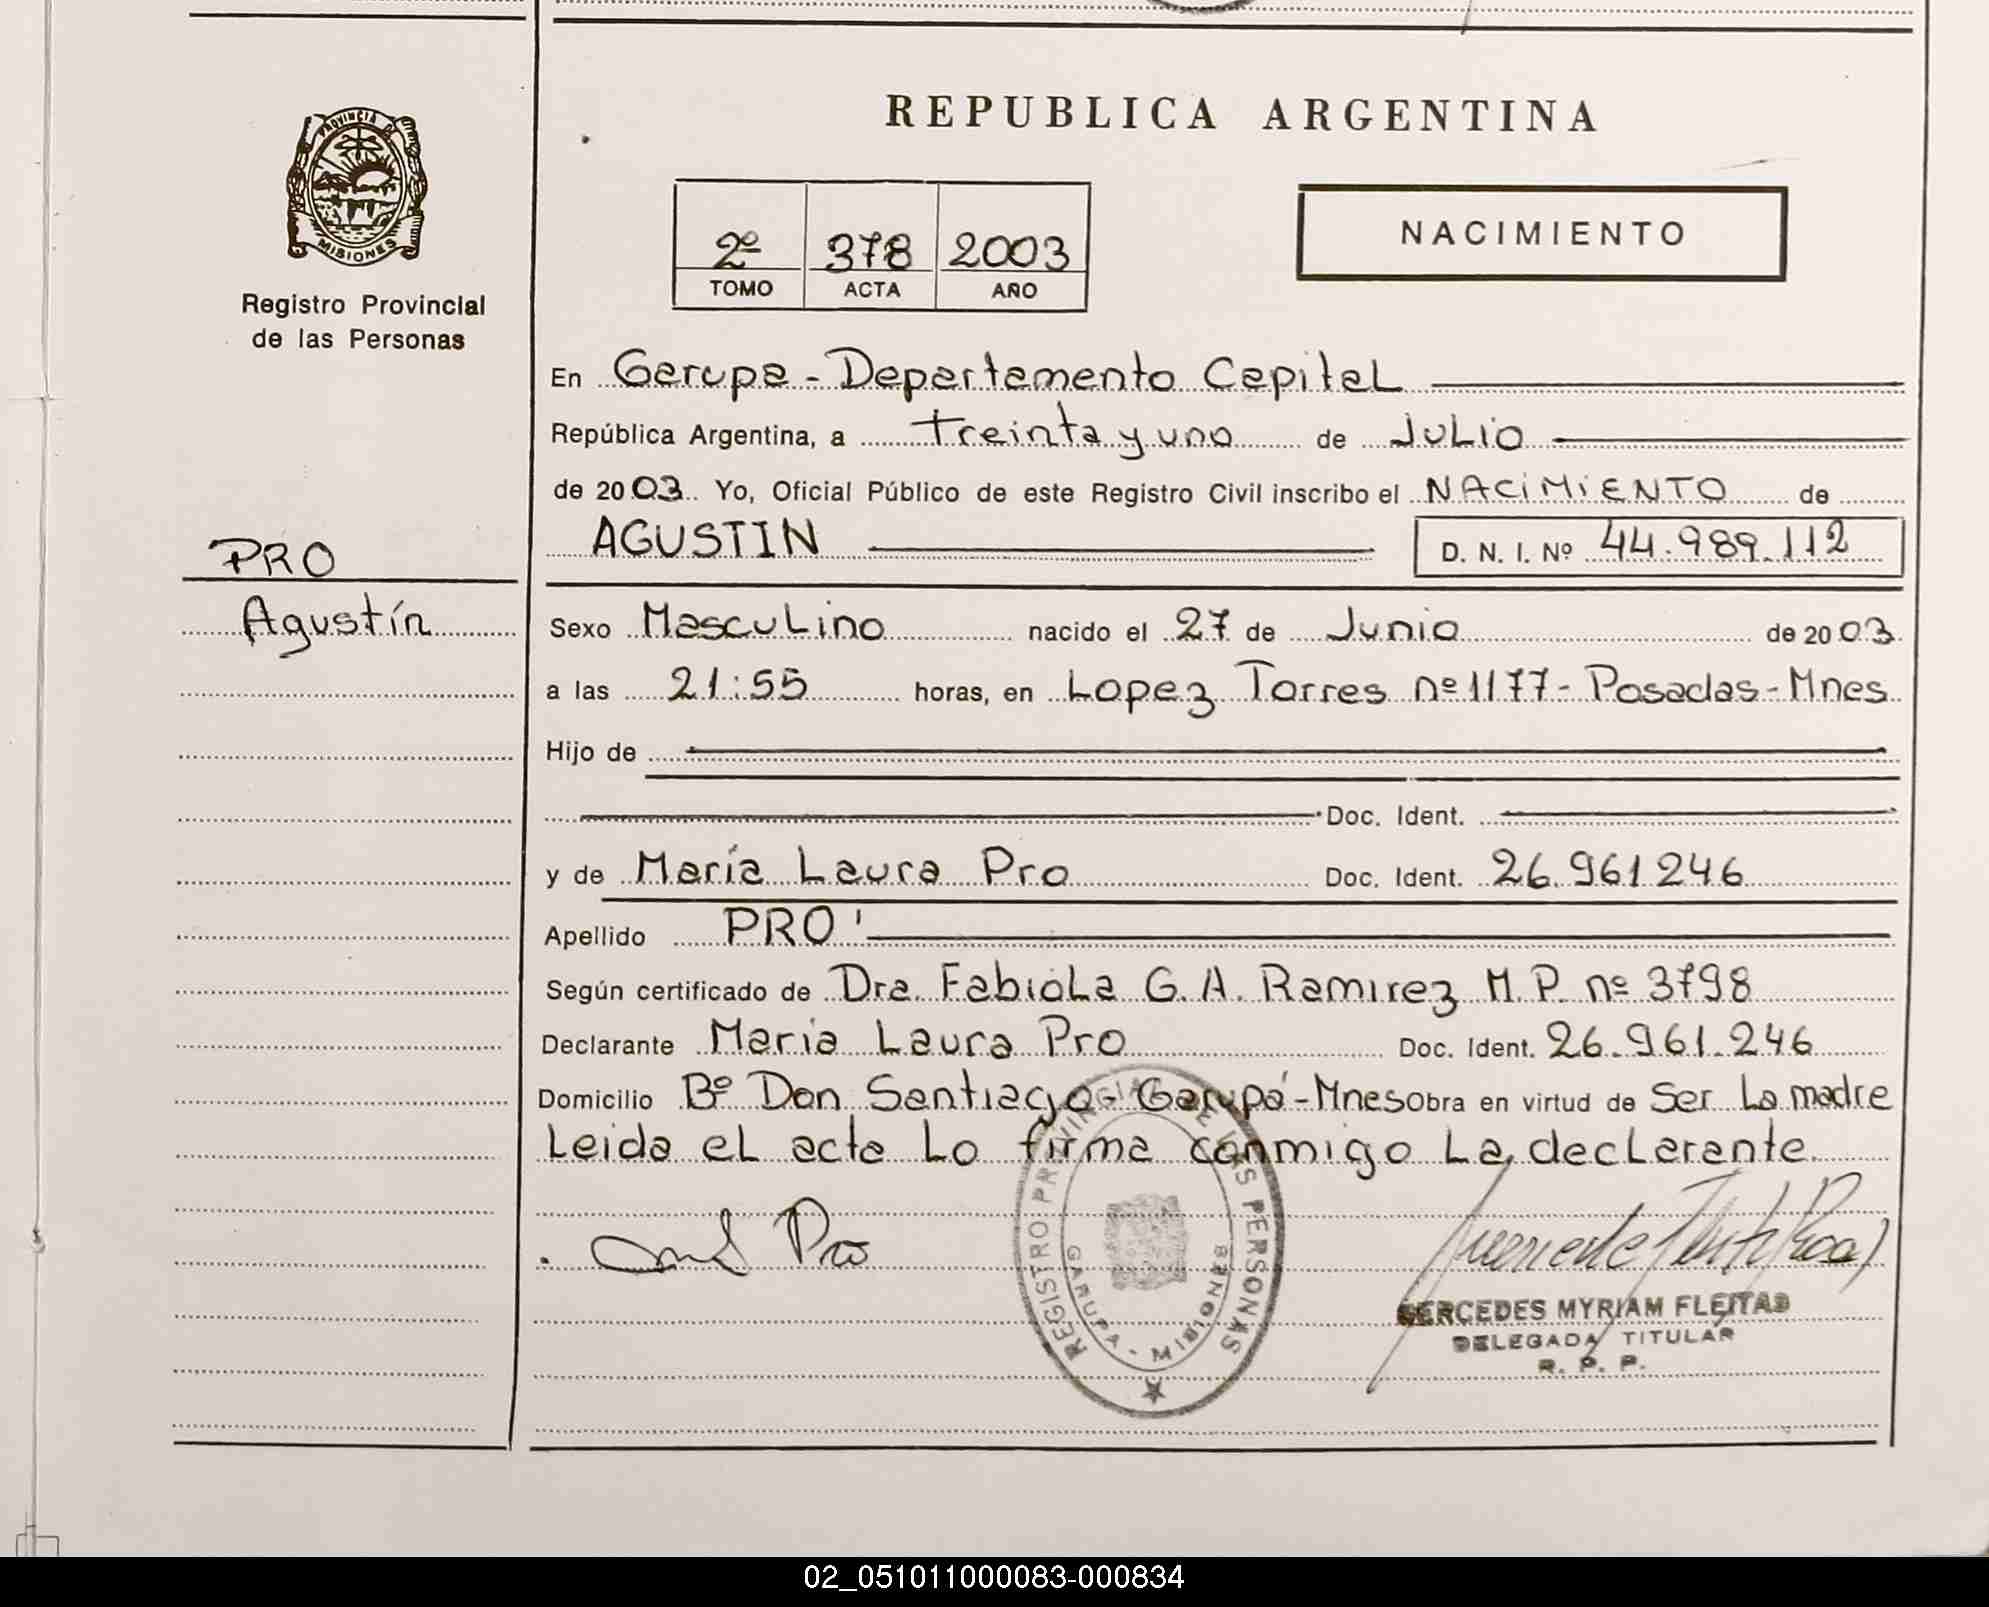 REPUBLICA ARGENTINA
PROVINCIA DE
MISIONES
Registro Provincial
de las Personas
2º 378 2003
TOMO ACTA AÑO
NACIMIENTO
En Garupa - Departamento Capital
República Argentina, a treinta y uno de Julio
de 2003 Yo, Oficial Público de este Registro Civil inscribo el NACIMIENTO de
AGUSTIN D. N. I. Nº 44.989.112
PRO
Agustín
Sexo Masculino nacido el 27 de Junio de 2003
a las 21:55 horas, en Lopez Torres nº 1177 - Posadas - Mnes
Hijo de
Doc. Ident.
y de María Laura Pro Doc. Ident. 26.961246
Apellido PRO
Según certificado de Dra. Fabiola G. A. Ramirez M. P. nº 3798
Declarante Maria Laura Pro Doc. Ident. 26.961.246
Domicilio Bº Don Santiago - Garupá - Mnes Obra en virtud de Ser La madre
Leida el acta Lo firma conmigo La declarante
Pro
REGISTRO PROVINCIAL DE LAS PERSONAS
GARUPA - MISIONES
MERCEDES MYRIAM FLEITAS
DELEGADA TITULAR
R. P. P.
02_051011000083-000834